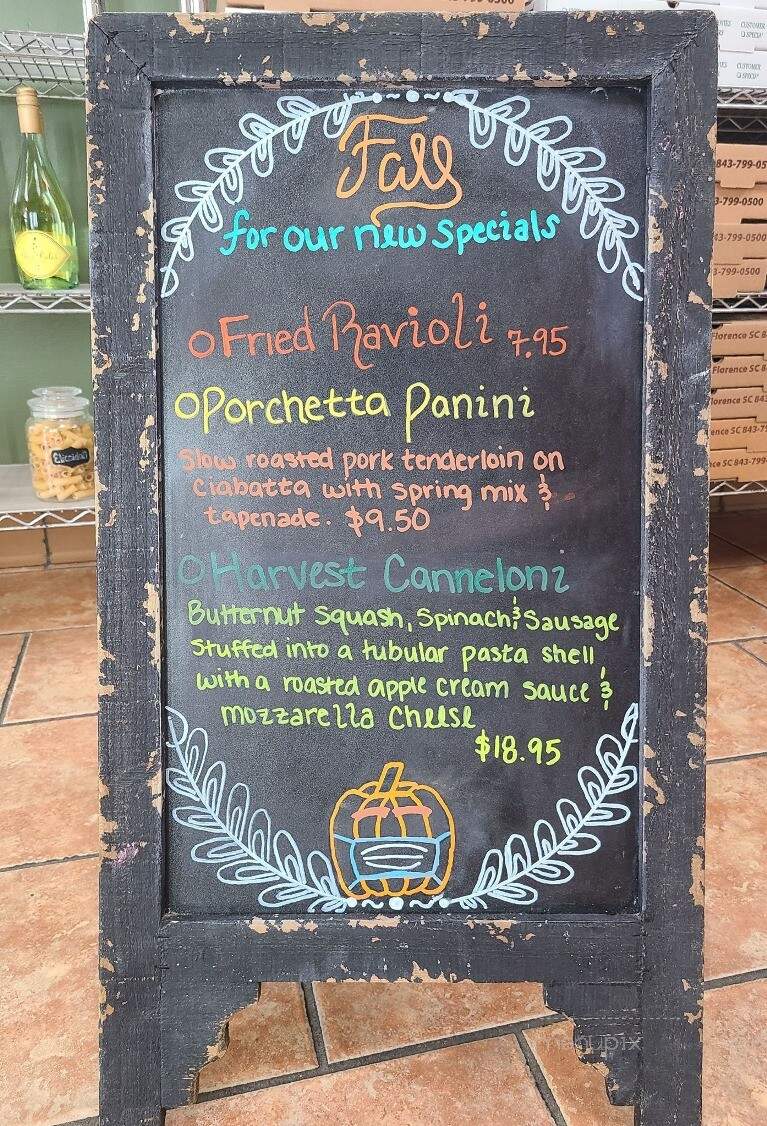 Fall
for our new specials
Fried Ravioli 7.95
Porchetta Panini
Slow roasted pork tenderloin on
Ciabatta with spring mix &
tapenade. $9.50
Harvest Canneloni
Butternut Squash, Spinach & Sausage
Stuffed into a tubular pasta shell
with a roasted apple cream sauce &
mozzarella cheese
$18.95
CUSTOMER
CUSTOMER
843-799-05
3-799-0500
3-799-0500
3-799-0500
Florence SC 8
Florence SC 8
orence SC 843
orence SC 843-7
SC 843-799